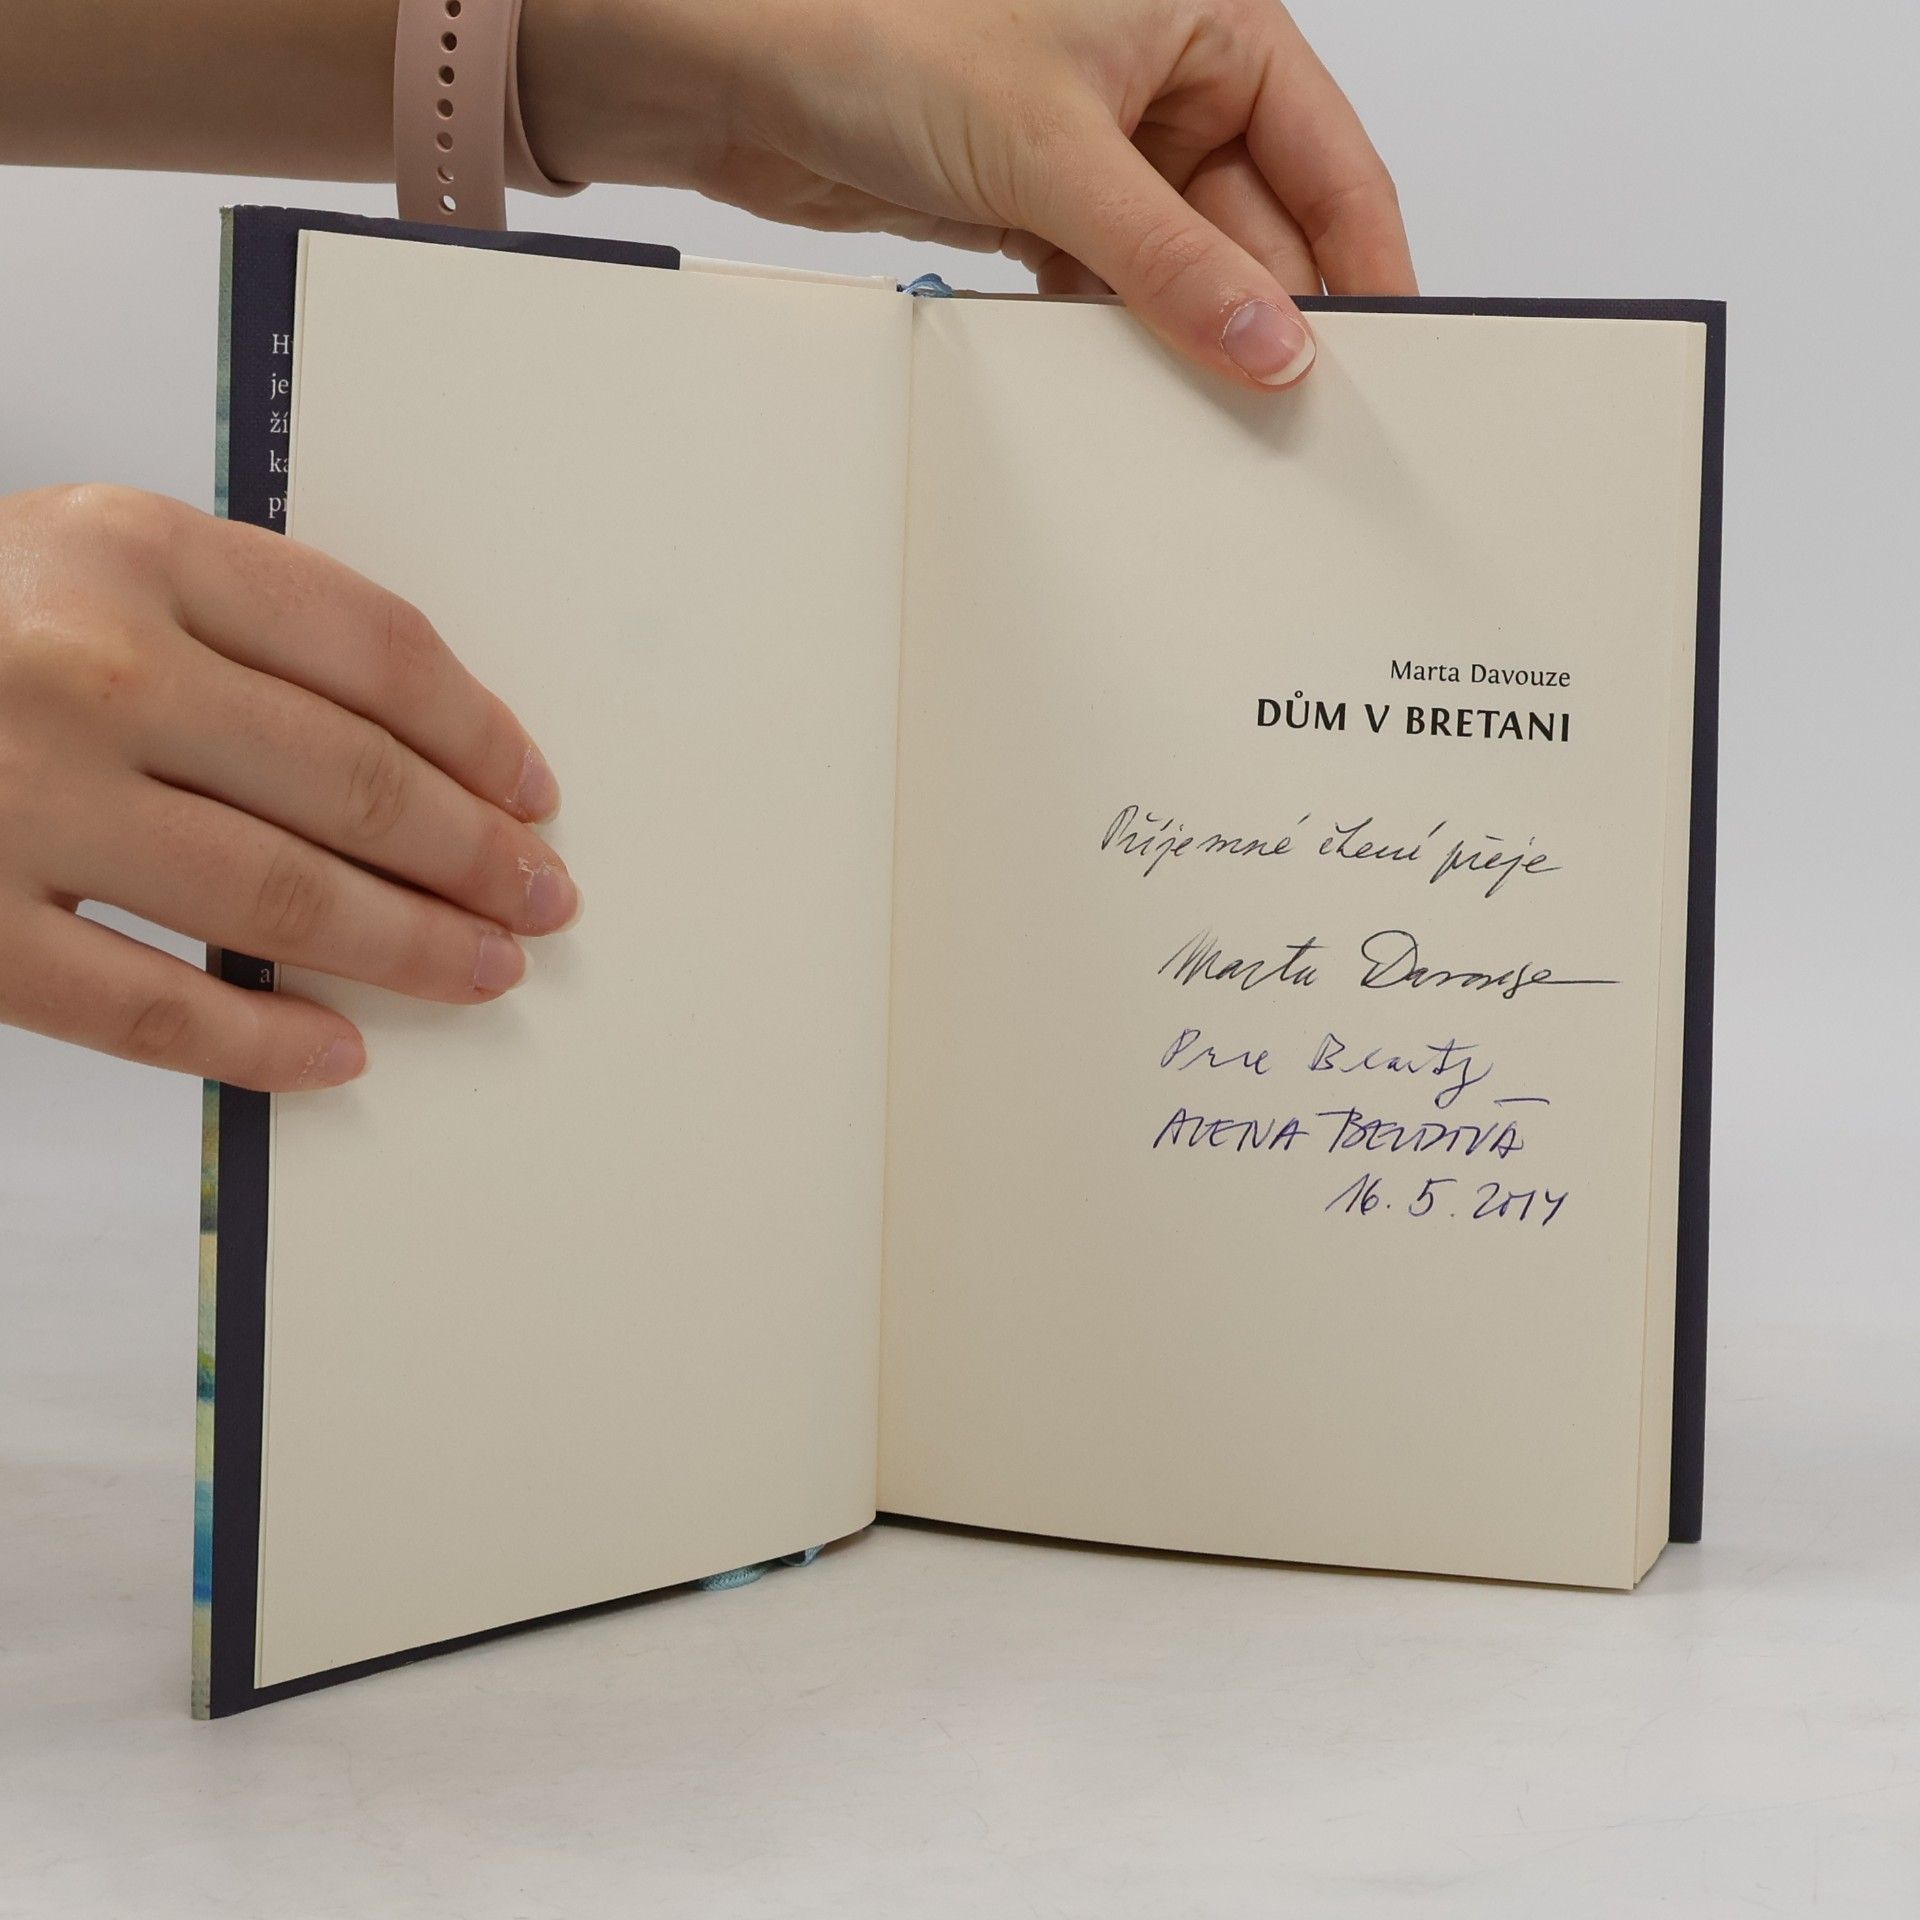 H
je
ží
ka
př
a
Marta Davouze
DŮM V BRETANI
Příjemné čtení přeje
Marta Davouze
Beauty
ALENA
16. 5. 2014